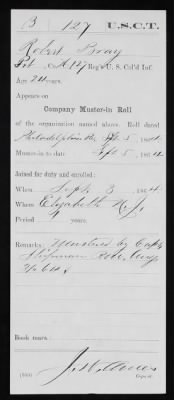 B 127 U.S.C.T.
Robert Bray
Pvt., Co. H, 127 Reg't U. S. Col'd Inf.
Age 24 years.
Appears on
Company Muster-in Roll
of the organization named above. Roll dated
Philadelphia Pa Sept. 5, 1864.
Muster-in to date Sept 5, 1864
Joined for duty and enrolled:
When Sept. 3, 1864
Where Elizabeth N.J.
Period 1 years.
Remarks: Mustered by Capt
Book mark:
Copyist.